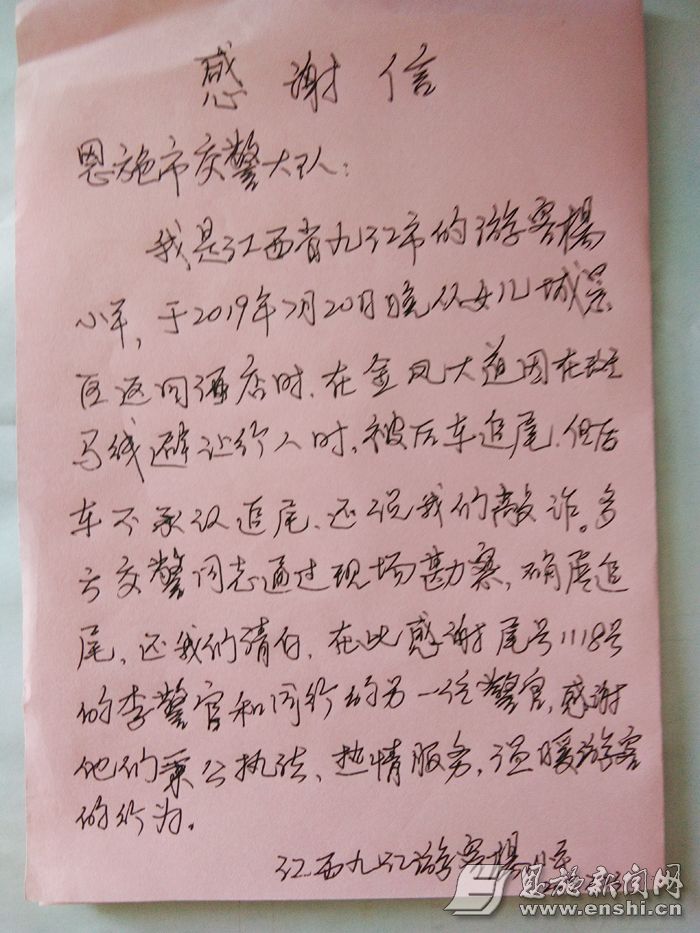 感谢信
恩施市交警大队:
我是江西省九江市的游客楊
小军,于2019年7月20日晚从女儿城景
区返回酒店时.在金凤大道因在斑
马线避让行人时.被后车追尾.但后
车不承认追尾、还说我们敲诈。多
亏交警同志通过现场勘察,确虑追
尾,还我们清白,在此感谢尾号1118号
的李警官和同行的另一位警官,感谢
他们秉公执法、热情服务,温暖游客
的行为。
江西九江游客楊小军
恩施新闻网
www.enshi.cn